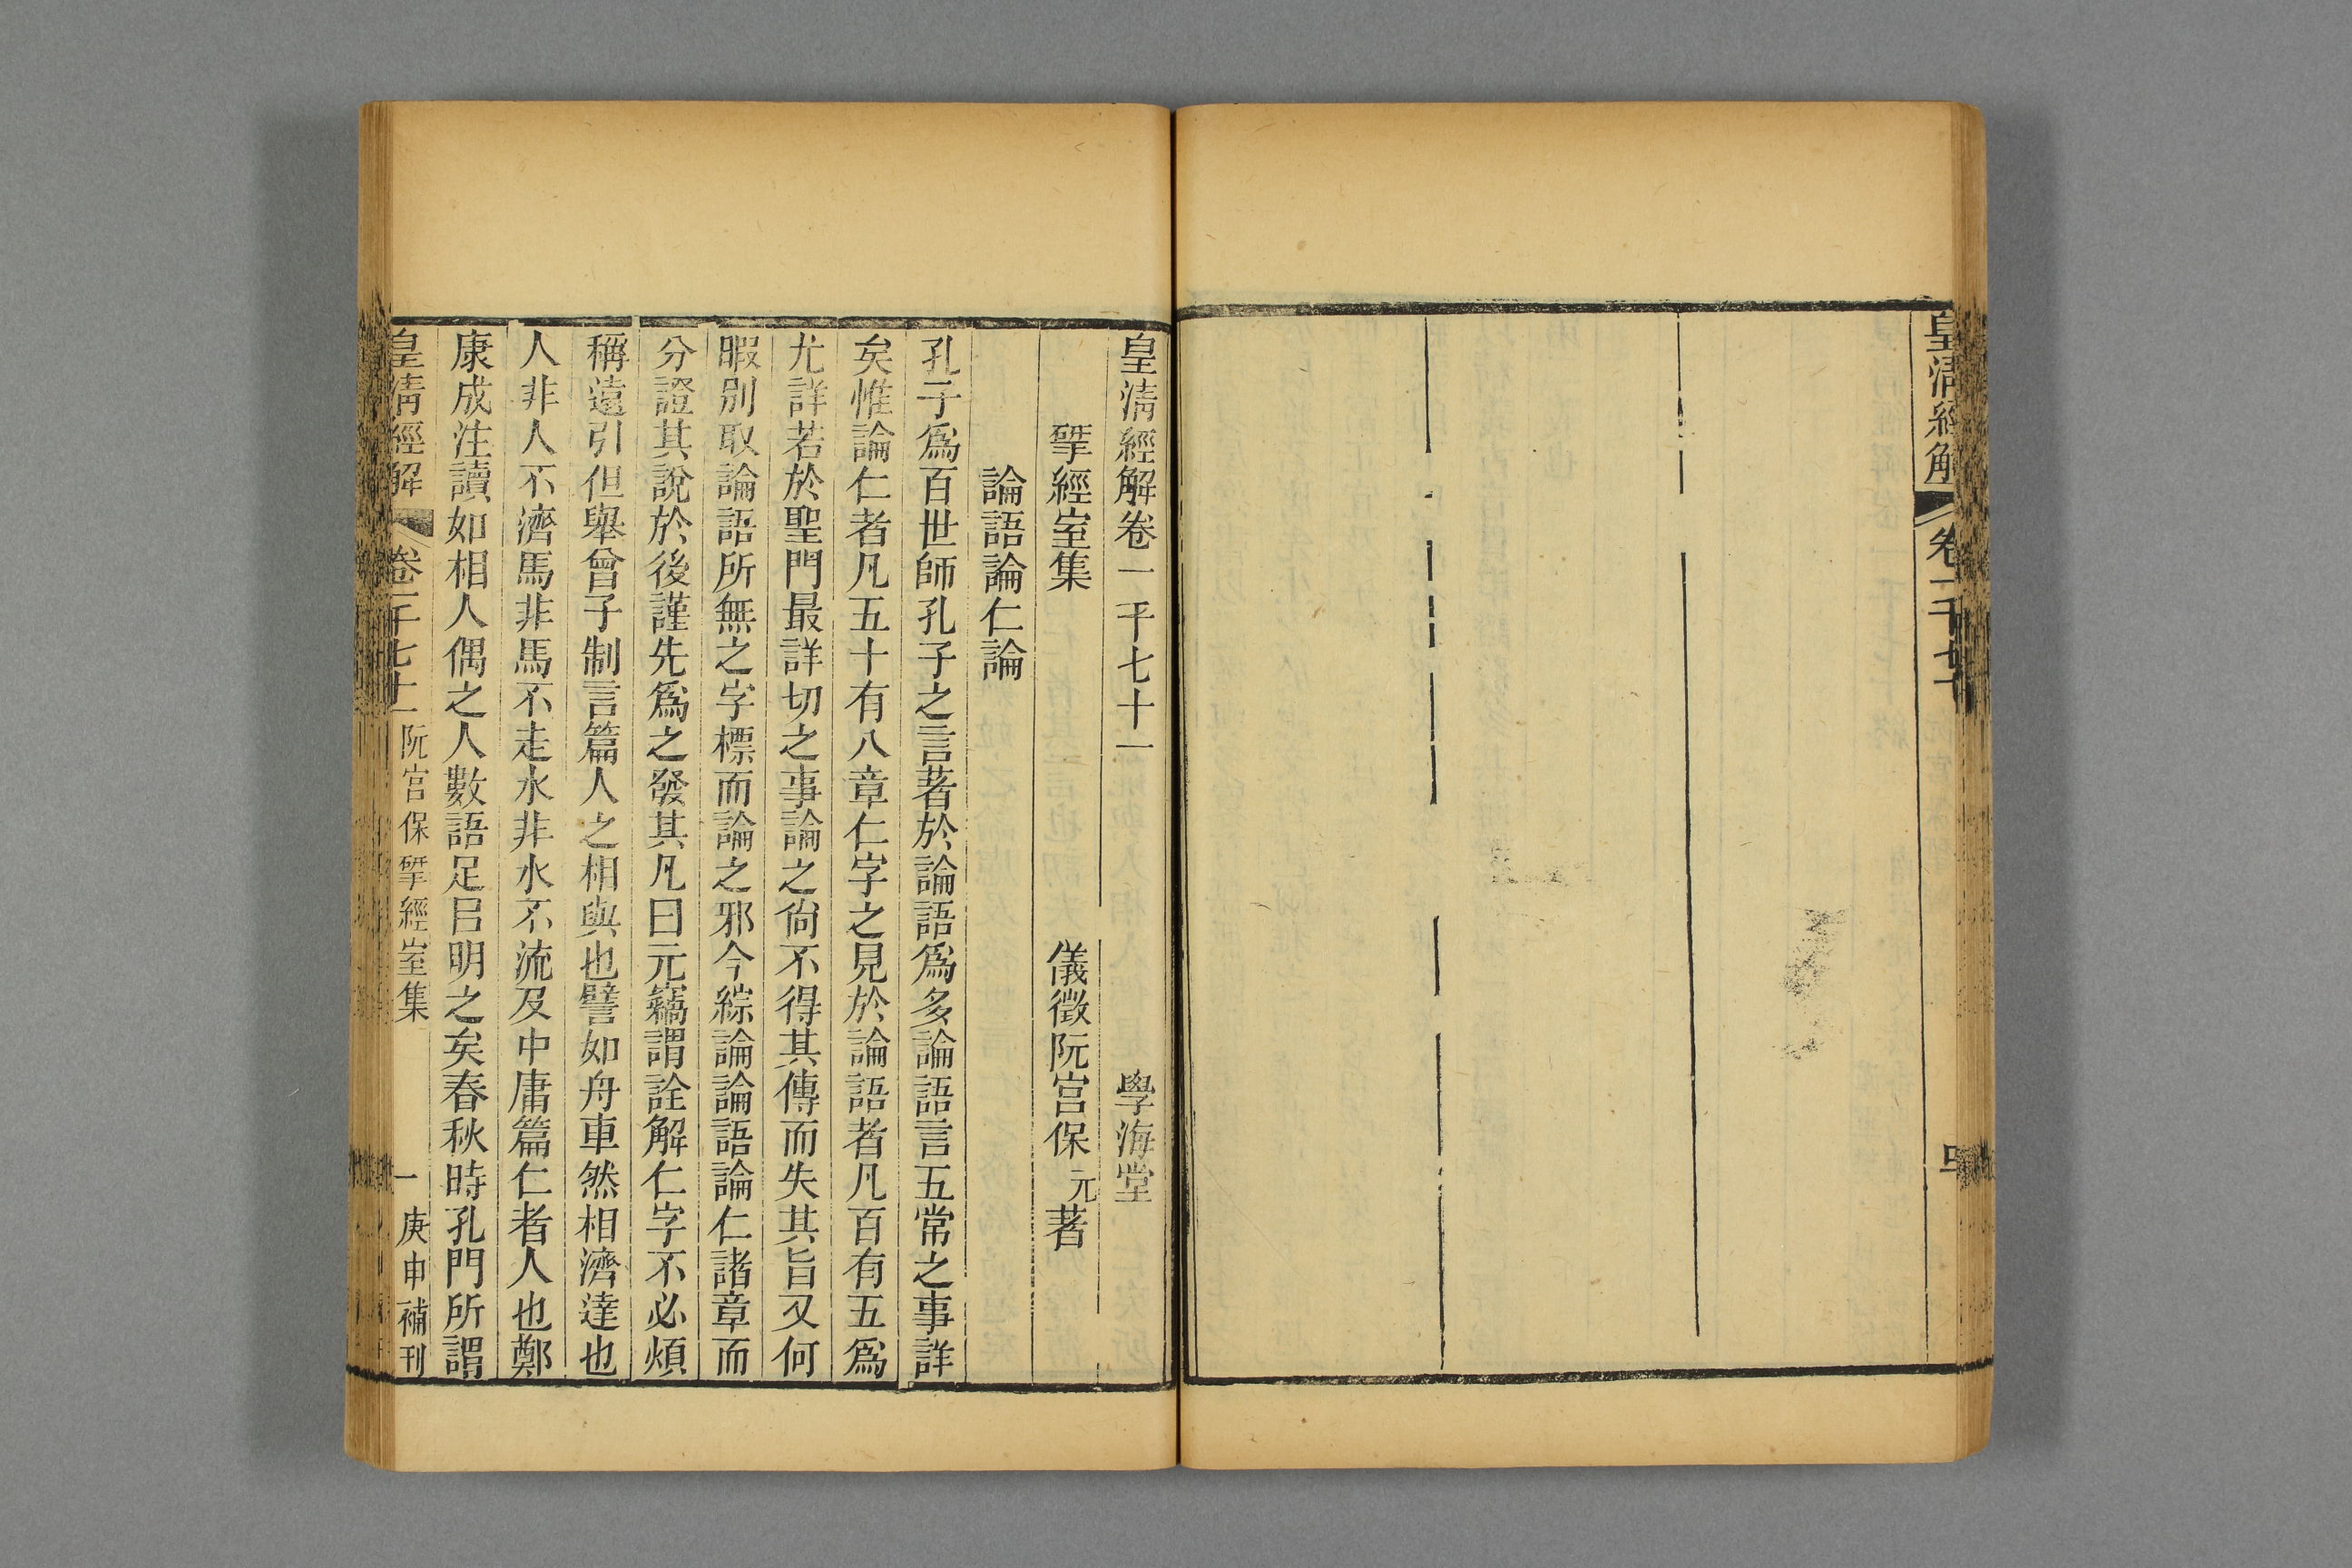 皇清經解 卷一千七十 四
皇清經解卷一千七十一 學海堂
揅經室集 儀徵阮宮保元著
論語論仁論
孔子爲百世師孔子之言著於論語爲多論語言五常之事詳
矣惟論仁者凡五十有八章仁字之見於論語者凡百有五爲
尤詳若於聖門最詳切之事論之尙不得其傳而失其旨又何
暇別取論語所無之字標而論之邪今綜論論語論仁諸章而
分證其說於後謹先爲之發其凡曰元竊謂詮解仁字不必煩
稱遠引但舉曾子制言篇人之相與也譬如舟車然相濟達也
人非人不濟馬非馬不走水非水不流及中庸篇仁者人也鄭
康成注讀如相人偶之人數語足㠯明之矣春秋時孔門所謂
皇清經解 卷一千七十一 阮宮保揅經室集 一 庚申補刊